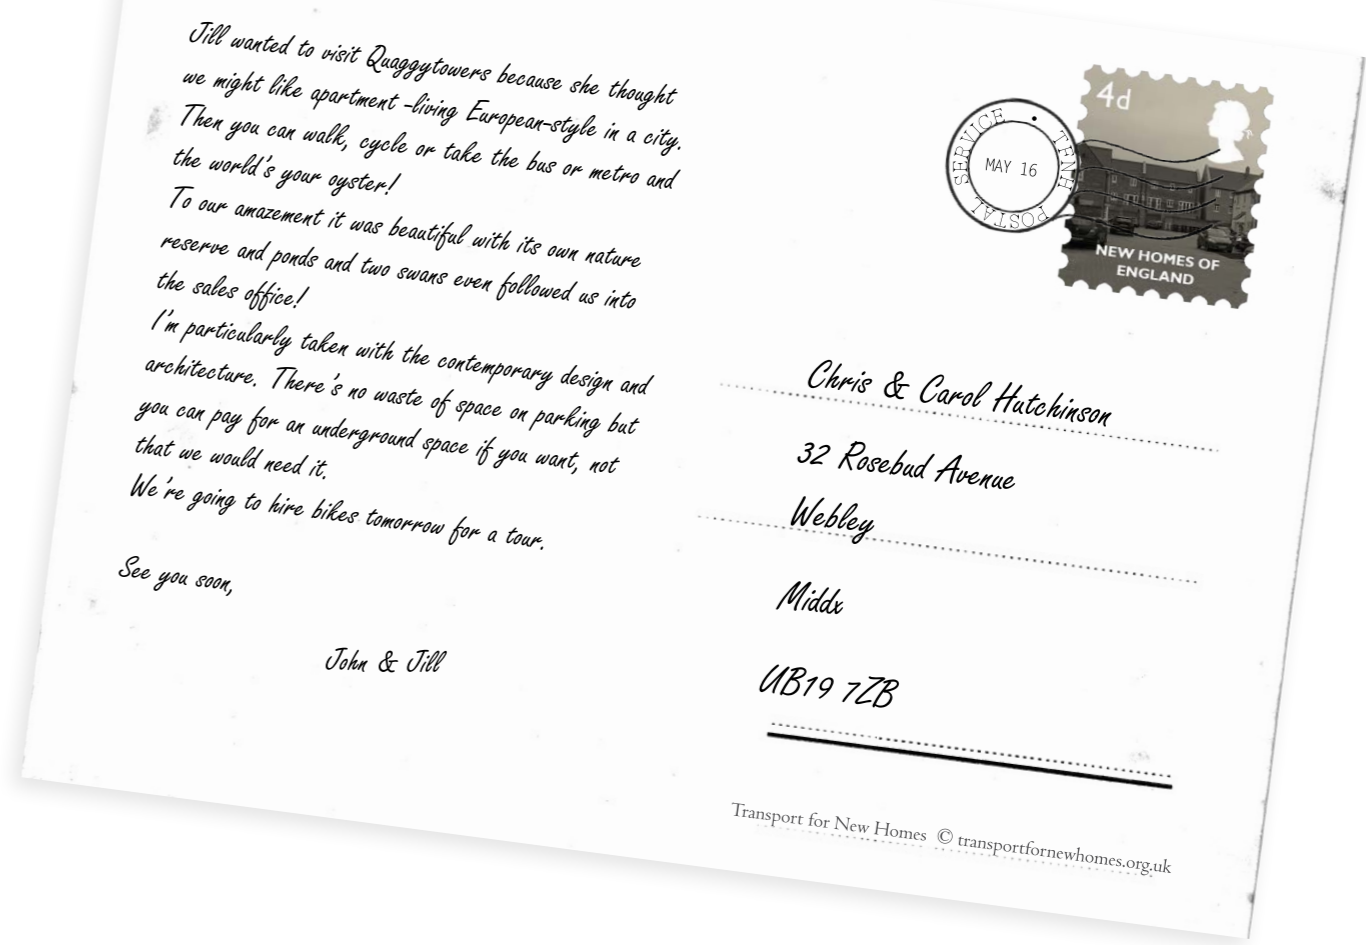 Jill wanted to visit Quaggytowers because she thought
we might like apartment -living European-style in a city.
Then you can walk, cycle or take the bus or metro and
the world's your oyster!
To our amazement it was beautiful with its own nature
reserve and ponds and two swans even followed us into
the sales office!
I'm particularly taken with the contemporary design and
architecture. There's no waste of space on parking but
you can pay for an underground space if you want, not
that we would need it.
We're going to hire bikes tomorrow for a tour.
See you soon,
John & Jill
4d
NEW HOMES OF
ENGLAND
TFNH POSTAL SERVICE
MAY 16
Chris & Carol Hutchinson
32 Rosebud Avenue
Webley
Middx
UB19 7ZB
Transport for New Homes © transportfornewhomes.org.uk